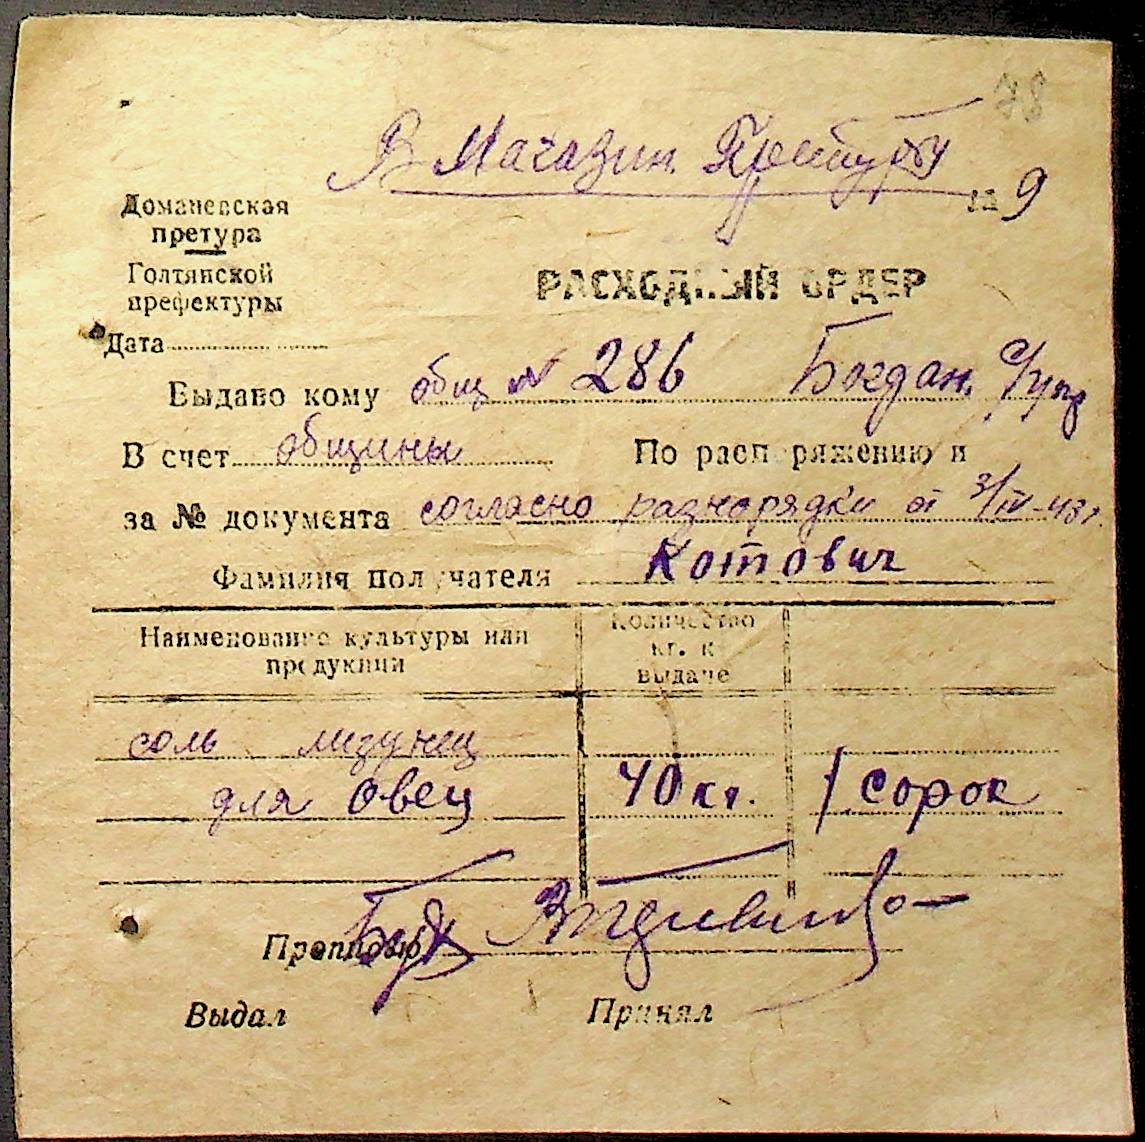 78
В Магазин. Претуры
на 9
Доманевская
претура
Голтянской
префектуры
РАСХОДНЫЙ ОРДЕР
Дата
Выдано кому общ № 286 Богдан. с/упр
В счет общины По распоряжению и
за № документа согласно разнорядки от 3/IV-43 г.
Фамилия получателя Котович
Наименование культуры или
продукции
Количество
кг. к
выдаче
соль лизунец
для овец 40 кг. /сорок
Препиовю
Выдал Принял